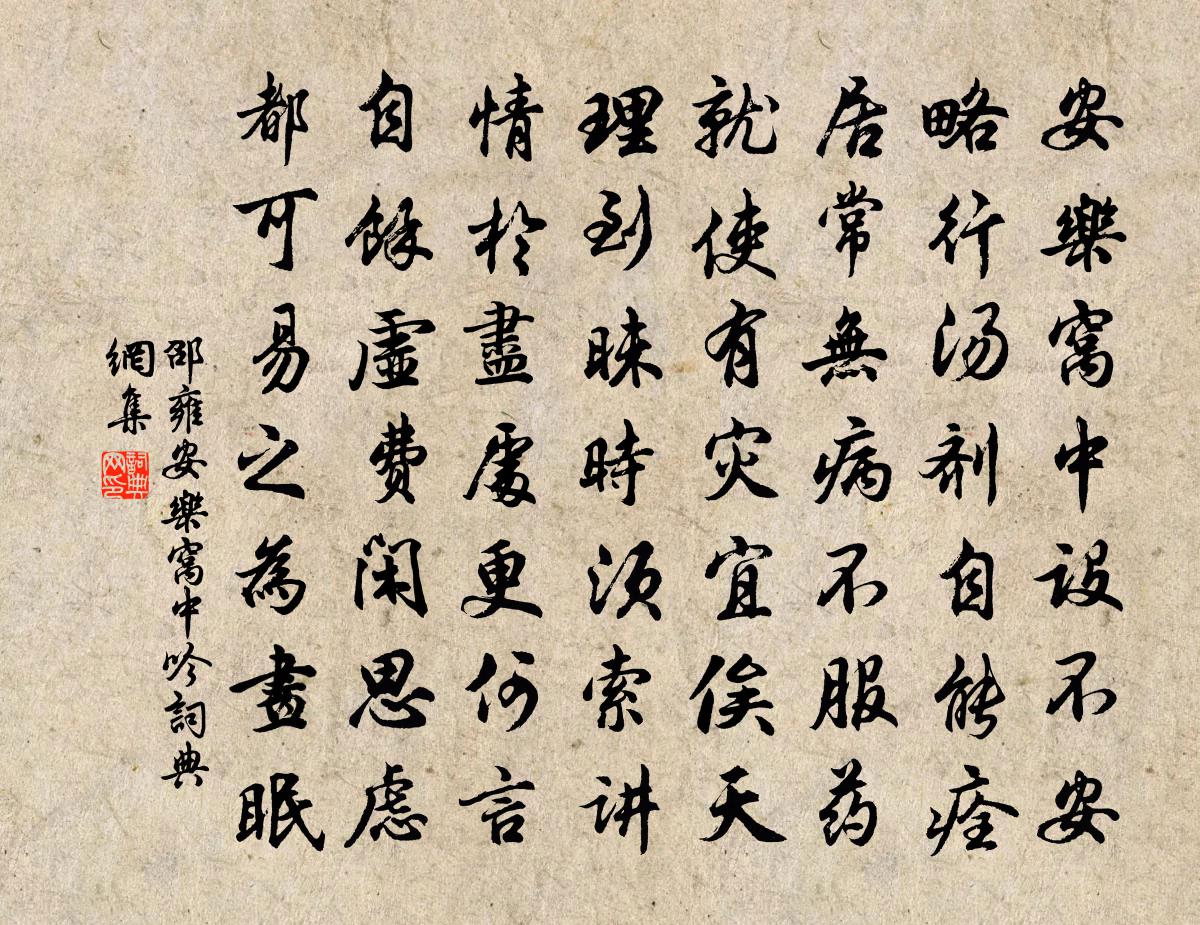 安樂窩中設不安
略行汤剂自能痊
居常無病不服药
就使有灾宜俟天
理到昧時须索讲
情於盡處更何言
自餘虛費閑思慮
都可易之為晝眠
邵雍安樂窩中吟詞典
網集
詞典網印